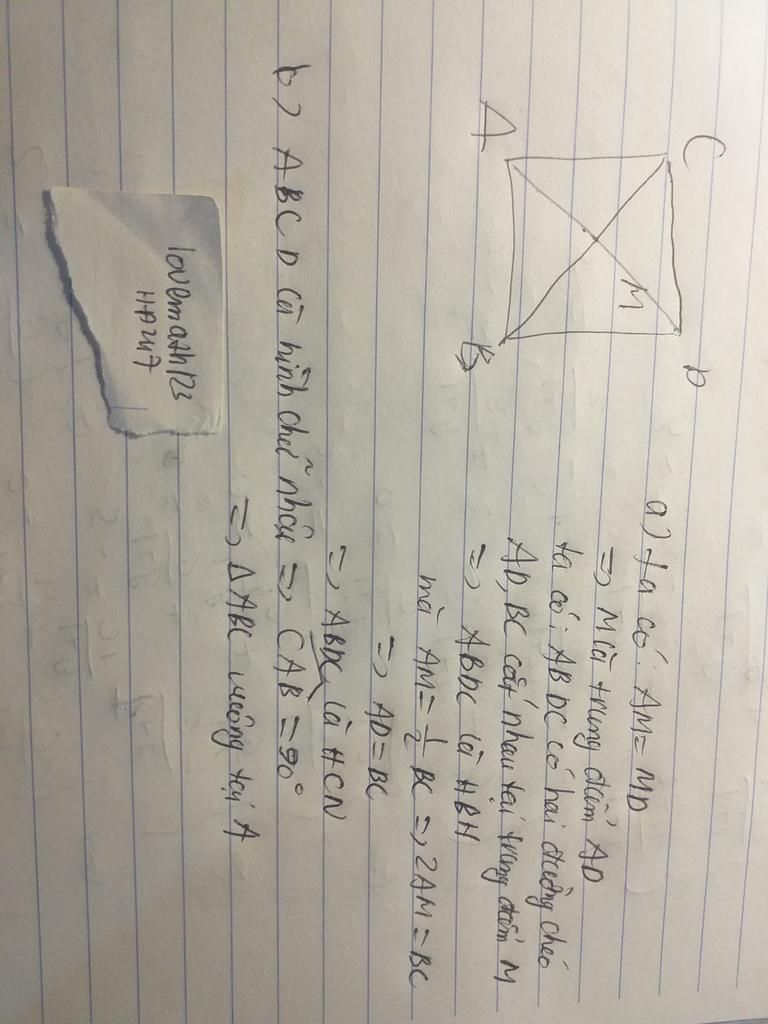 C
D
A
B
M
a) ta có: AM = MD
=> M là trung điểm AD
ta có: ABDC có hai đường chéo
AD, BC cắt nhau tại trung điểm M
=> ABDC là HBH
mà AM = 1/2 BC => 2AM = BC
=> AD = BC
=> ABDC là HCN
b) ABCD là hình chữ nhật => CAB = 90°
=> ΔABC vuông tại A
lovemath123